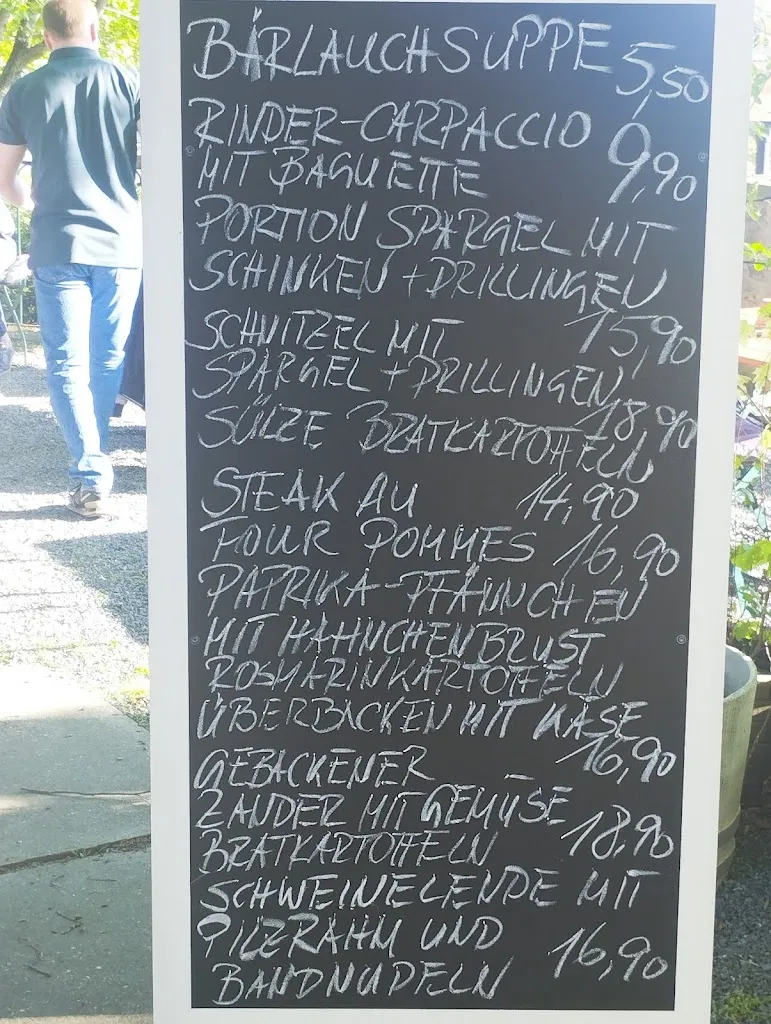 BÄRLAUCHSUPPE 5,50
RINDER-CARPACCIO
MIT BAGUETTE 9,90
PORTION SPARGEL MIT
SCHINKEN + DRILLINGEN
15,90
SCHNITZEL MIT
SPARGEL + DRILLINGEN
18,90
SÜLZE BRATKARTOFFELN
14,90
STEAK AU
FOUR POMMES 16,90
PAPRIKA-PFÄNNCHEN
MIT HÄHNCHENBRUST
ROSMARINKARTOFFELN
ÜBERBACKEN MIT KÄSE
16,90
GEBACKENER
ZANDER MIT GEMÜSE
BRATKARTOFFELN 18,90
SCHWEINELENDE MIT
PILZRAHM UND
BANDNUDELN 16,90